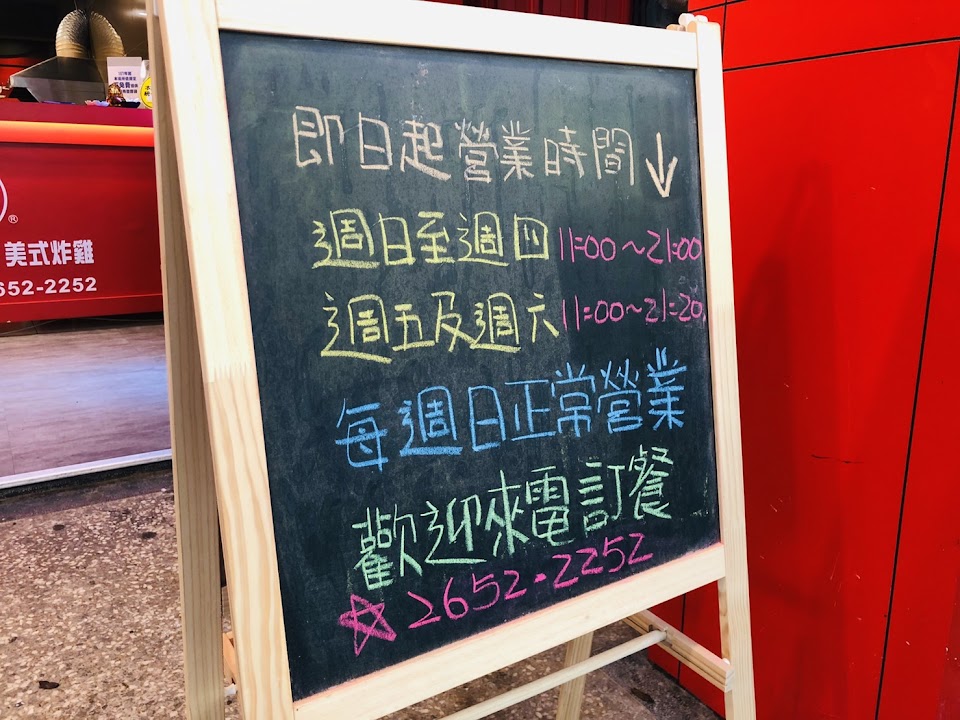 即日起營業時間↓
週日至週四 11:00～21:00
週五及週六 11:00～21:20
每週日正常營業
歡迎來電訂餐
☆2652·2252
美式炸雞
652-2252
®